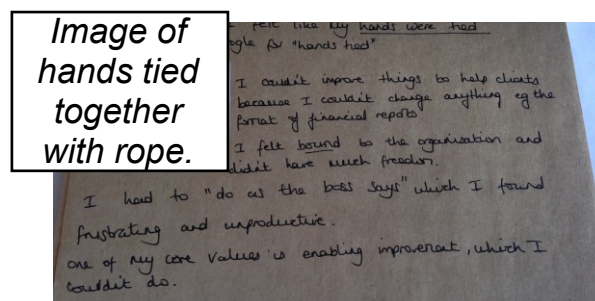 Image of
hands tied
together
with rope.
felt like my hands were tied
google for "hands tied"
I couldn't improve things to help clients
because I couldn't change anything eg the
format of financial reports
I felt bound to the organisation and
didn't have much freedom.
I had to "do as the boss says" which I found
frustrating and unproductive.
one of my core values is enabling improvement, which I
couldn't do.